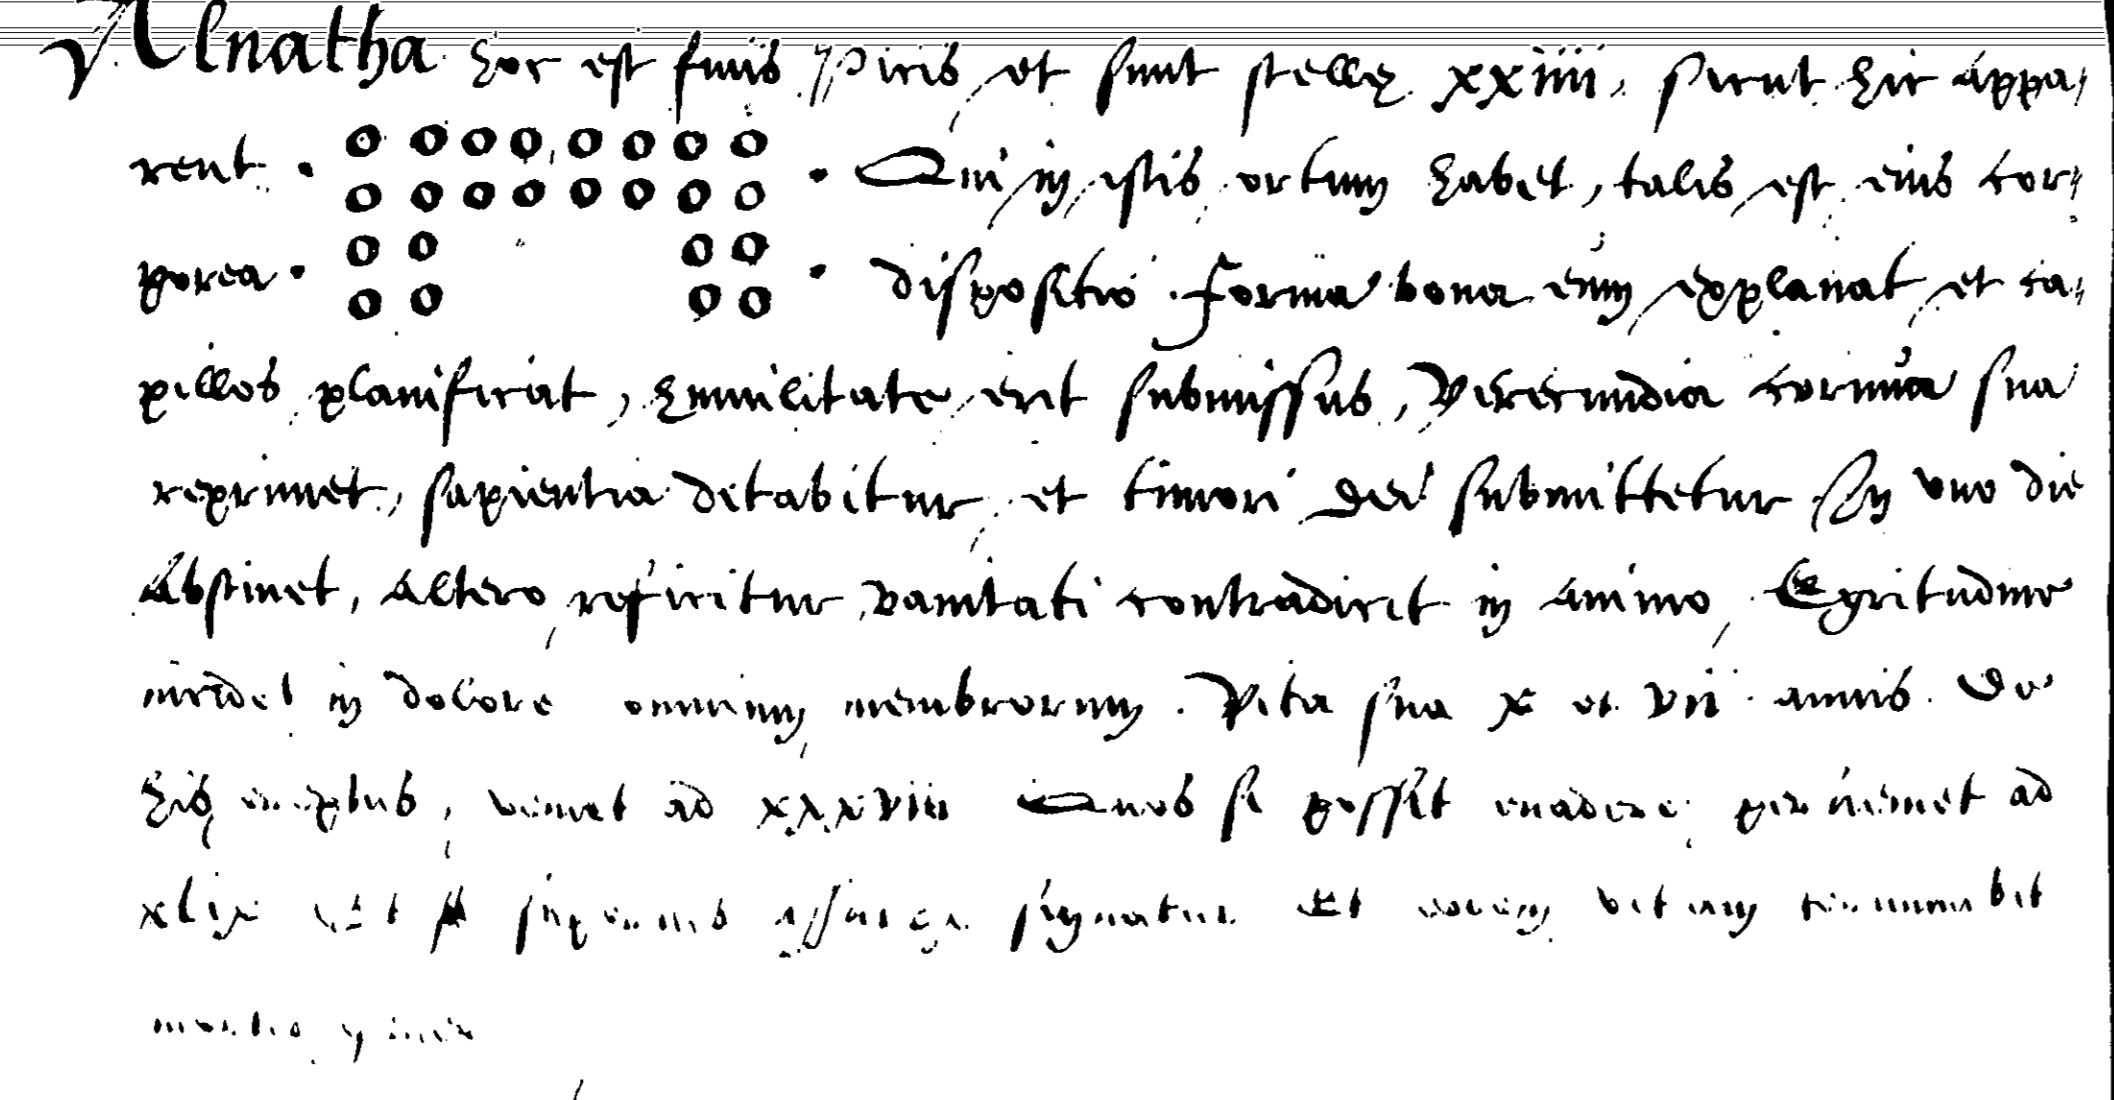 Alnatha hoc est finis Piscis et sunt stellę xxiiii, sicut hic appa-
rent. Qui in istis ortum habet, talis est eius cor-
porea dispositio. Forma bona eum explanat et ca-
pillos planificat, humilitate erit submissus, Verecundia cornua sua
reprimet, sapientia ditabitur, et timori Dei submittetur. In uno die
Abstinet, altero reficitur, vanitati contradicet in animo, Egritudine
incidet in dolore omnium membrorum. Vita sua x et vii annis. De
his ereptus, veniet ad xxxviii Quos si possit evadere, perveniet ad
xlix signatur Et vitam terminabit